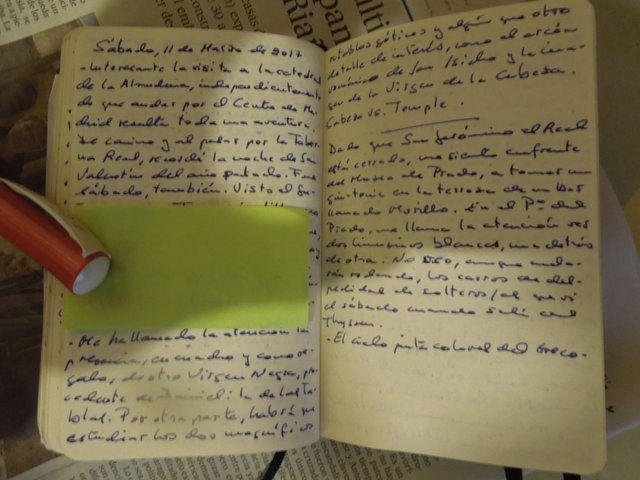 Sábado, 11 de Marzo de 2017
- Interesante la visita a la catedral
de la Almudena, independientemente
de que andar por el Centro de Ma-
drid resulta toda una aventura.
De camino y al pasar por la Taber-
na Real, recordé la noche de San
Valentín del año pasado. Fue
sábado, también. Visto el
- Me ha llamado la atención la
presencia, en cuadro y como re-
galo, de otra Virgen Negra, pro-
cedente de : la de las Ta-
blas. Por otra parte, habrá que
estudiar los dos magníficos
retablos góticos y algún que otro
detalle de interés, como el arcón
románico de San Isidro y la ima-
gen de la Virgen de la Cabeza.
Cabeza vs. Temple.
Dado que San Jerónimo el Real
está cerrado, me siento enfrente
del Museo de Prado, a tomar un
gin-tonic en la terraza de un bar
llamado Murillo. En el Pº del
Prado, me llama la atención ver
dos limusinas blancas, una detrás
de otra. No veo, aunque anda-
rán rodando, los carros de des-
pedidad de solteros/as que vi
el sábado cuando salí del
Thyssen.
- El cielo está colorado del Greco-